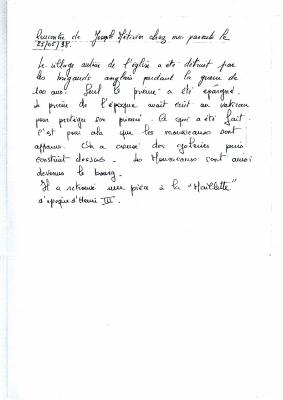 Rencontre de Joseph Métivier chez mes parents le
25/05/98.
Le village autour de l'église a été détruit par
les brigands anglais pendant la guerre de
100 ans. Seul le prieuré a été épargné.
Le prieur de l'époque avait écrit au vatican
pour protéger son prieuré. Ce qui a été fait.
C'est puis alors que les mousseaux sont
apparus. On a creusé des galeries puis
construit dessus. Les Mousseaux sont ainsi
devenus le bourg.
Il a retrouvé une pièce à la "Maillette"
d'époque d'Henri III.